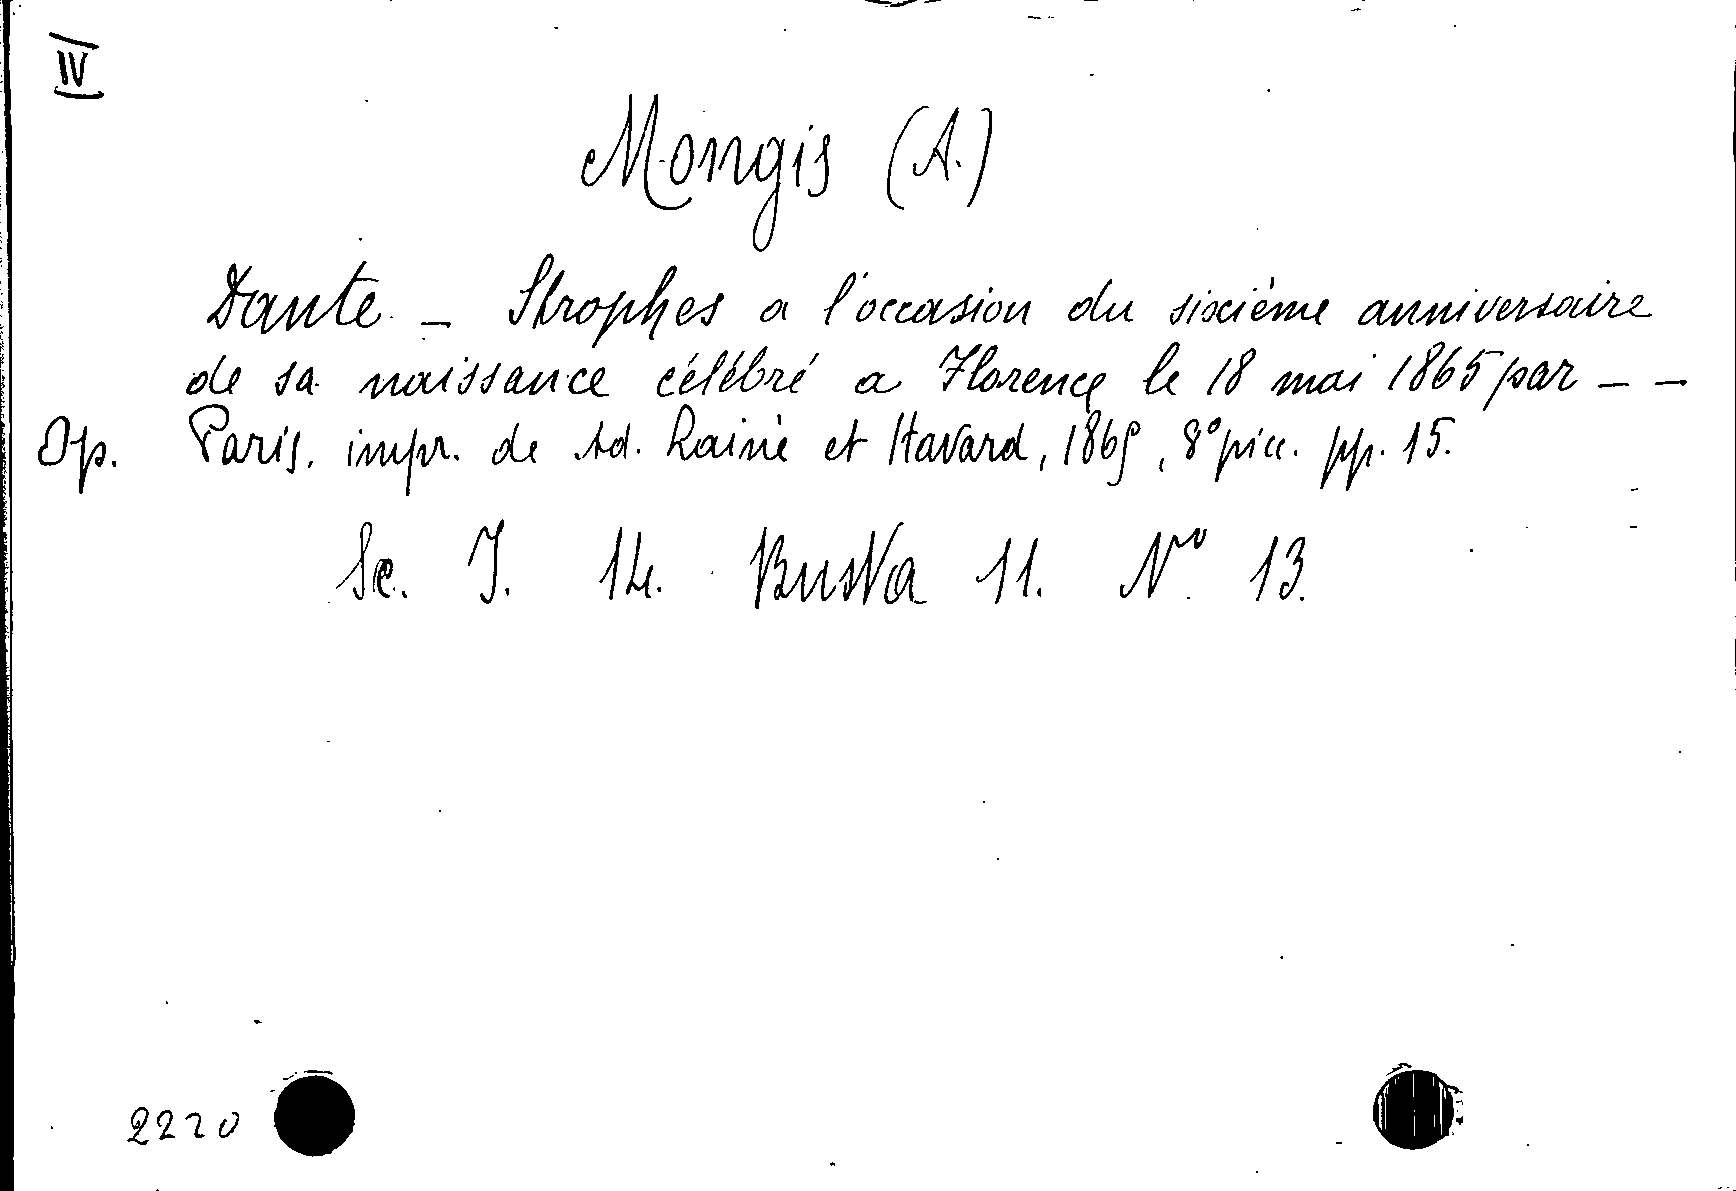 IV
Mongis (A.)
Dante - Strophes a l'occasion du sixième anniversaire
de sa naissance célébré a Florence le 18 mai 1865 par - -
Op. Paris. impr. de Ad. Lainé et Havard, 1865, 8° picc. pp. 15.
Sc. I. 14. Busta 11. N° 13.
2220